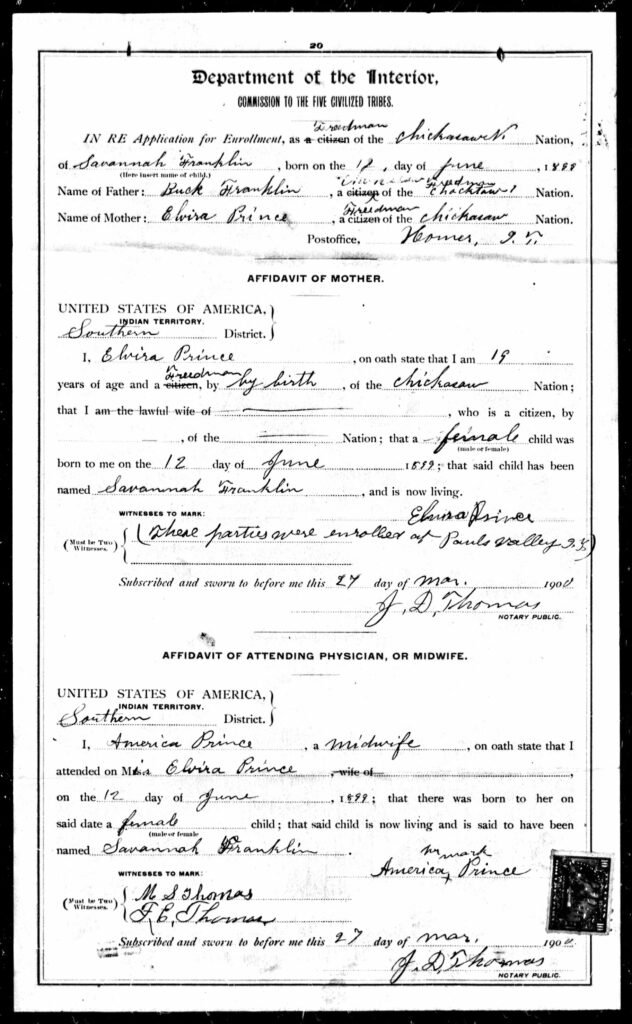 20
Department of the Interior,
COMMISSION TO THE FIVE CIVILIZED TRIBES.
Freedman
IN RE Application for Enrollment, as a citizen of the Chickasaw Nation,
of Savannah Franklin, born on the 12, day of June, 1899
(Here insert name of child.)
Freedman
Name of Father: Buck Franklin, a citizen of the Chocktaw Nation.
Freedman
Name of Mother: Elvira Prince, a citizen of the Chickasaw Nation.
Postoffice, Homer, I.T.
AFFIDAVIT OF MOTHER.
UNITED STATES OF AMERICA,
INDIAN TERRITORY.
Southern District.
I, Elvira Prince, on oath state that I am 19
Freedman
years of age and a citizen, by by birth, of the Chickasaw Nation;
that I am the lawful wife of , who is a citizen, by
, of the Nation; that a female child was
(male or female)
born to me on the 12 day of June 1899; that said child has been
named Savannah Franklin, and is now living.
WITNESSES TO MARK: Elvira Prince
(Must be Two Witnesses.) (These parties were enrolled at Pauls Valley I.T.)
Subscribed and sworn to before me this 27 day of Mar. 1900
J. D. Thomas
NOTARY PUBLIC.
AFFIDAVIT OF ATTENDING PHYSICIAN, OR MIDWIFE.
UNITED STATES OF AMERICA,
INDIAN TERRITORY.
Southern District.
I, America Prince, a midwife, on oath state that I
attended on Miss Elvira Prince, wife of ,
on the 12 day of June, 1899; that there was born to her on
said date a female child; that said child is now living and is said to have been
(male or female
named Savannah Franklin.
mark
WITNESSES TO MARK: America x Prince
(Must be Two Witnesses.) M S Thomas
F. E. Thomas
Subscribed and sworn to before me this 27 day of Mar. 1900
J. D. Thomas
NOTARY PUBLIC.